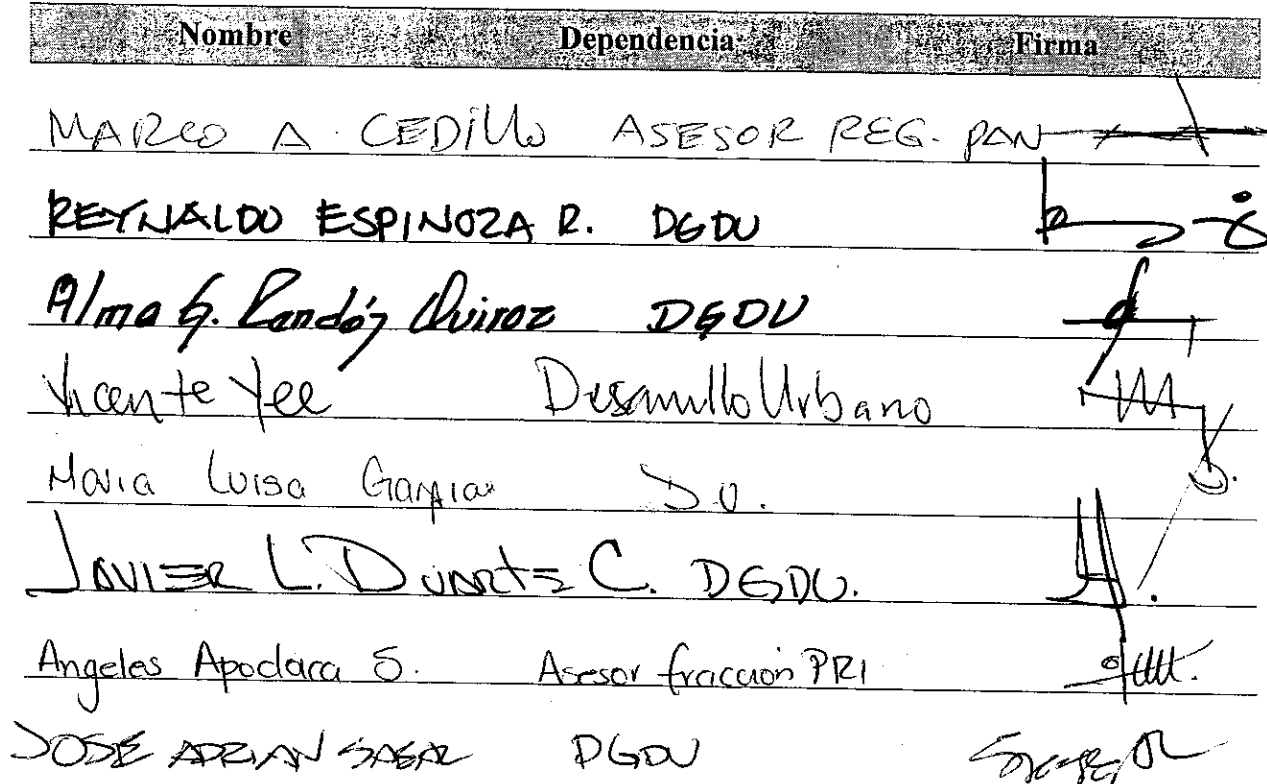 Nombre Dependencia Firma
MARCO A. CEDILLO ASESOR REG. PAN
REYNALDO ESPINOZA R. DGDU
Alma G. Quiroz DGDU
Vicente Yee Desarrollo Urbano
Maria Luisa D.U.
JAVIER L. DUARTE C. DGDU.
Angeles Apodaca S. Asesor fracción PRI
JOSE ADRIAN DGDU